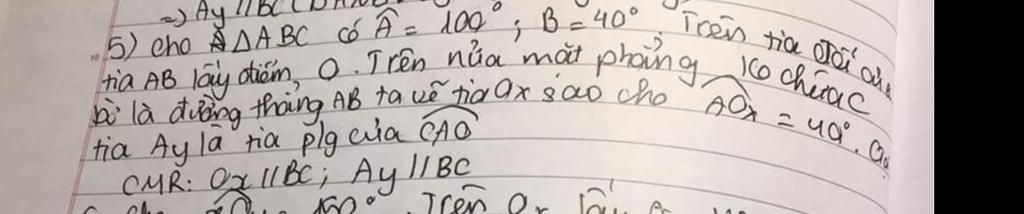 => Ay // BC
5) cho ΔABC có Â = 100° ; B = 40° Trên tia đối của
tia AB lấy điểm O. Trên nửa mặt phẳng ko chứa C
bờ là đường thẳng AB ta vẽ tia Ox sao cho AOx = 40°. Gọi
tia Ay là tia p/g của CAO
CMR: Ox // BC ; Ay // BC
Trên Ox lấy